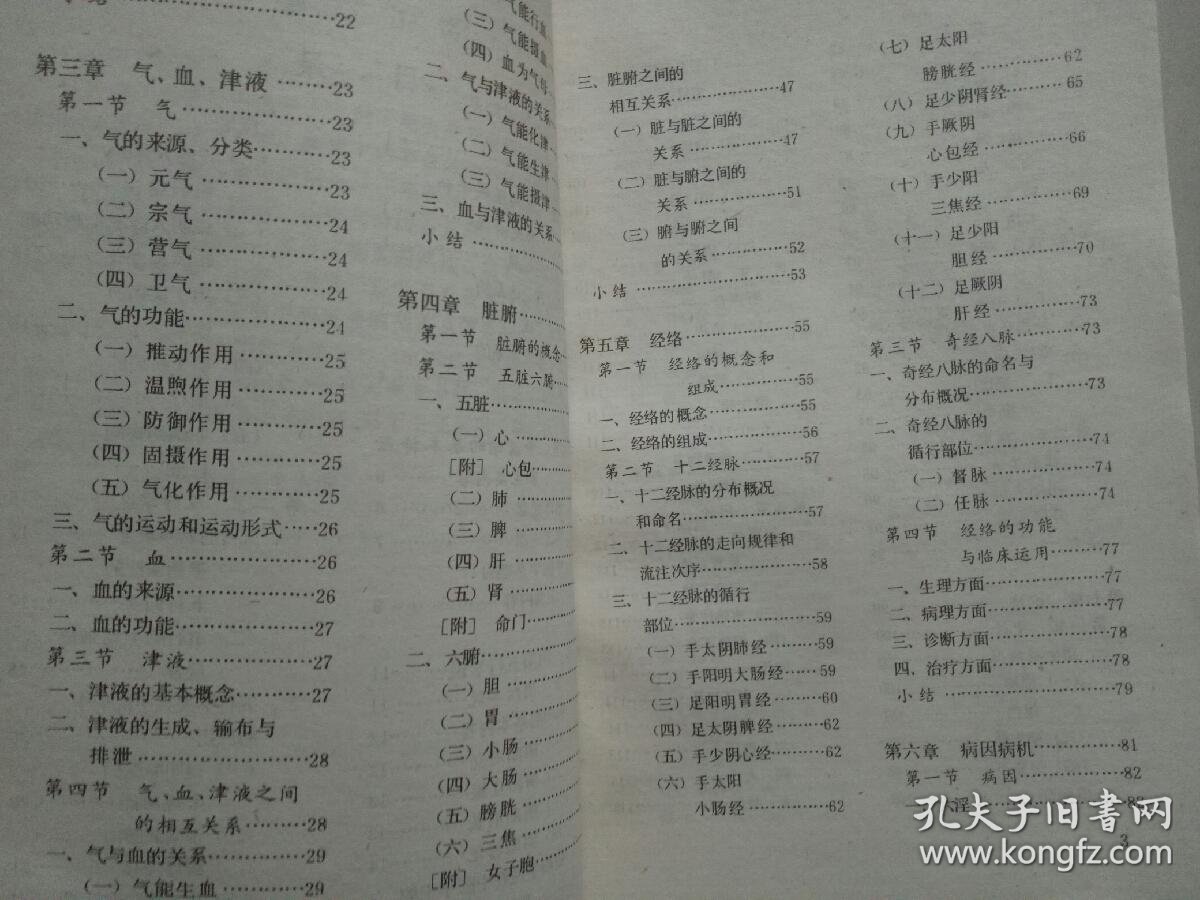 小结……22
第三章 气、血、津液……23
第一节 气……23
一、气的来源、分类……23
(一)元气……23
(二)宗气……24
(三)营气……24
(四)卫气……24
二、气的功能……24
(一)推动作用……25
(二)温煦作用……25
(三)防御作用……25
(四)固摄作用……25
(五)气化作用……25
三、气的运动和运动形式……26
第二节 血……26
一、血的来源……26
二、血的功能……27
第三节 津液……27
一、津液的基本概念……27
二、津液的生成、输布与
排泄……28
第四节 气、血、津液之间
的相互关系……28
一、气与血的关系……29
(一)气能生血……29
气能行血
(三)气能摄血
(四)血为气母
二、气与津液的关系
(一)气能化津
(二)气能生津
(三)气能摄津
三、血与津液的关系
小结……
第四章 脏腑……
第一节 脏腑的概念
第二节 五脏六腑
一、五脏……
(一)心……
[附] 心包……
(二)肺……
(三)脾……
(四)肝……
(五)肾……
[附] 命门……
二、六腑……
(一)胆……
(二)胃……
(三)小肠……
(四)大肠……
(五)膀胱……
(六)三焦……
[附] 女子胞……
三、脏腑之间的
相互关系……47
(一)脏与脏之间的
关系……47
(二)脏与腑之间的
关系……51
(三)腑与腑之间
的关系……52
小结……53
第五章 经络……55
第一节 经络的概念和
组成……55
一、经络的概念……55
二、经络的组成……56
第二节 十二经脉……57
一、十二经脉的分布概况
和命名……57
二、十二经脉的走向规律和
流注次序……58
三、十二经脉的循行
部位……59
(一)手太阴肺经……59
(二)手阳明大肠经……59
(三)足阳明胃经……60
(四)足太阴脾经……62
(五)手少阴心经……62
(六)手太阳
小肠经……62
(七)足太阳
膀胱经……62
(八)足少阴肾经……65
(九)手厥阴
心包经……66
(十)手少阳
三焦经……69
(十一)足少阳
胆经……70
(十二)足厥阴
肝经……73
第三节 奇经八脉……73
一、奇经八脉的命名与
分布概况……73
二、奇经八脉的
循行部位……74
(一)督脉……74
(二)任脉……74
第四节 经络的功能
与临床运用……77
一、生理方面……77
二、病理方面……77
三、诊断方面……78
四、治疗方面……78
小结……79
第六章 病因病机……81
第一节 病因……82
一、六淫……82
3
孔夫子旧书网
www.kongfz.com